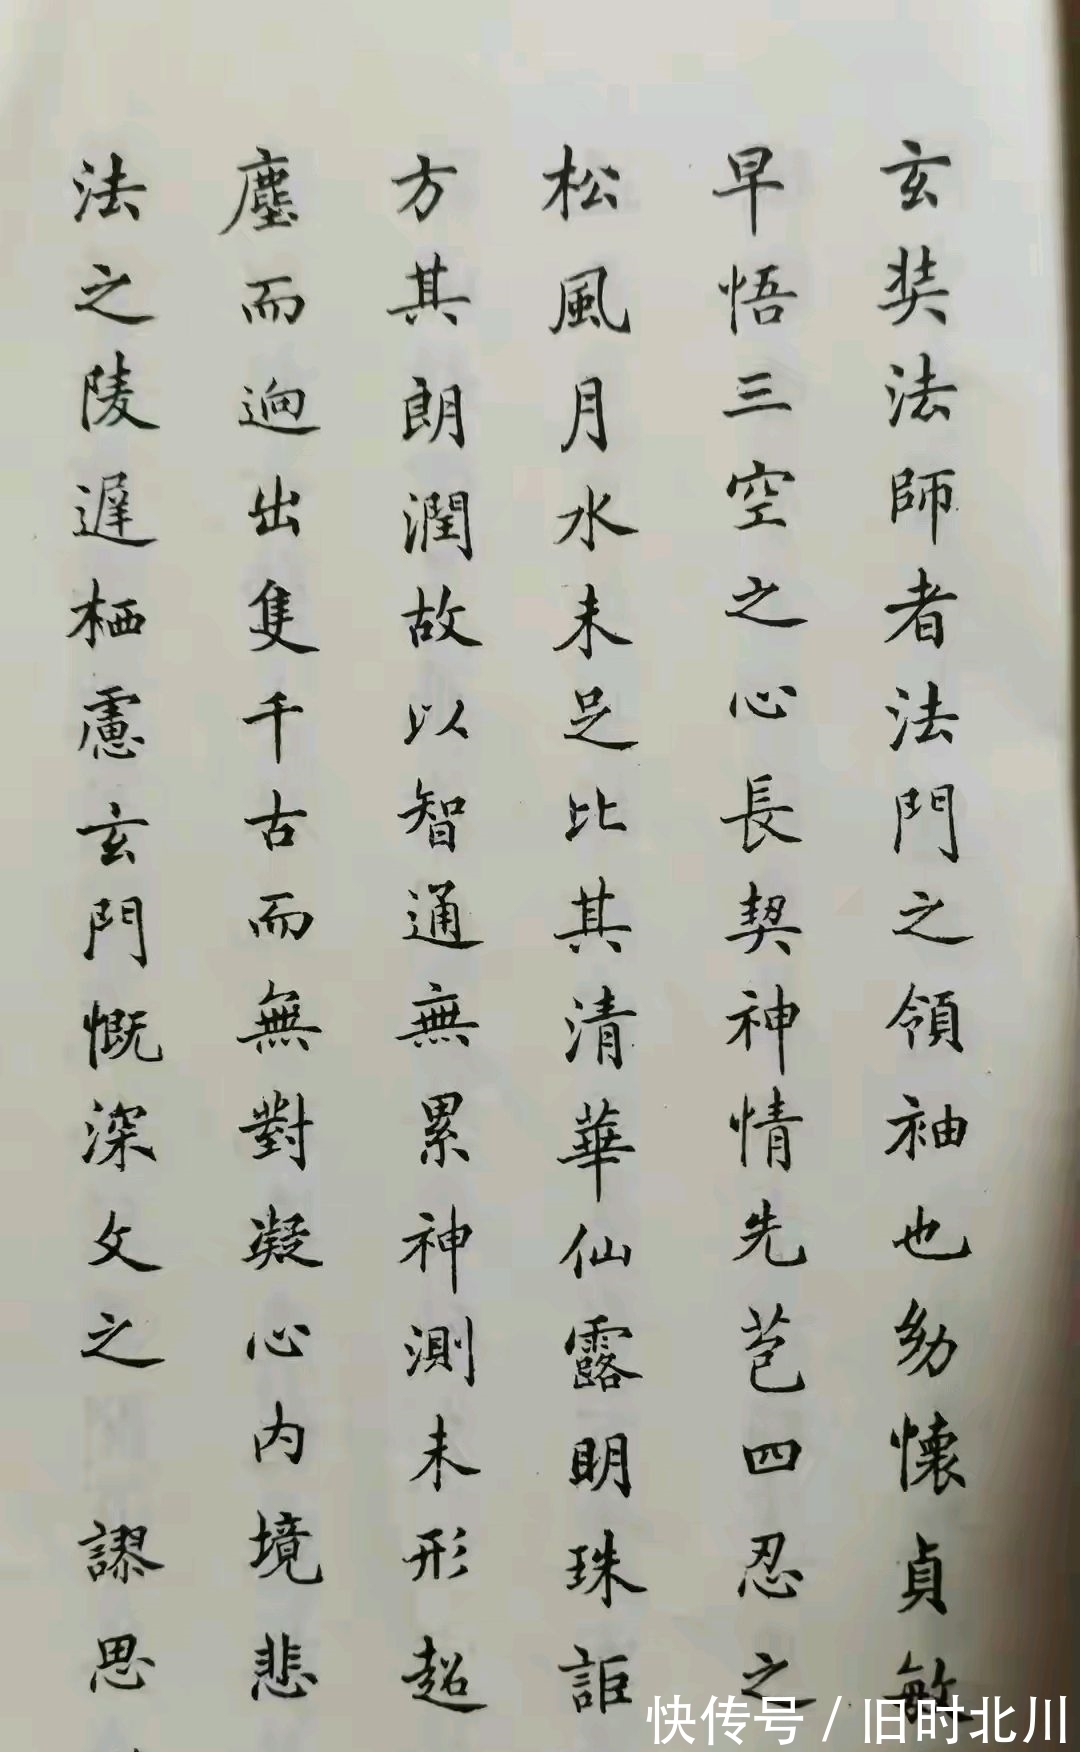 玄奘法師者法門之領袖也幼懷貞敏
早悟三空之心長契神情先苞四忍之
松風月水未足比其清華仙露明珠詎
方其朗潤故以智通無累神測未形超
塵而迥出隻千古而無對凝心內境悲
法之陵遲栖慮玄門慨深文之謬思
快传号/旧时北川